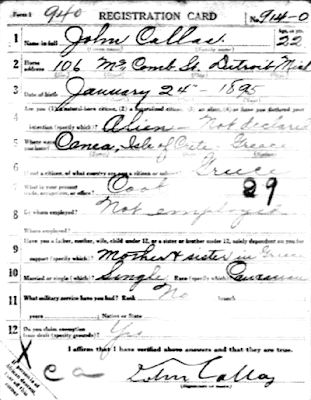 Form 1 940 REGISTRATION CARD No. 914-0
1 Name in full John Callas. Age, in yrs. 22
2 Home address 106 McComb St. Detroit Mich
3 Date of birth January 24th 1895
Are you (1) a natural-born citizen, (2) a naturalized citizen, (3) an alien, (4) or have you declared your
intention (specify which)? Alien - Not declared
5 Where were you born? Canea, Isle of Crete, Greece
6 If not a citizen, of what country are you a citizen or subject? Greece
7 What is your present trade, occupation, or office? Cook 29
8 By whom employed? Not employed
Where employed?
9 Have you a father, mother, wife, child under 12, or a sister or brother under 12, solely dependent on you for
support (specify which)? Mother & sister in Greece
10 Married or single (which)? Single Race (specify which)? Caucasian
11 What military service have you had? Rank No branch
years Nation or State
12 Do you claim exemption from draft (specify grounds)? Yes
I affirm that I have verified above answers and that they are true.
X
c a John Callas